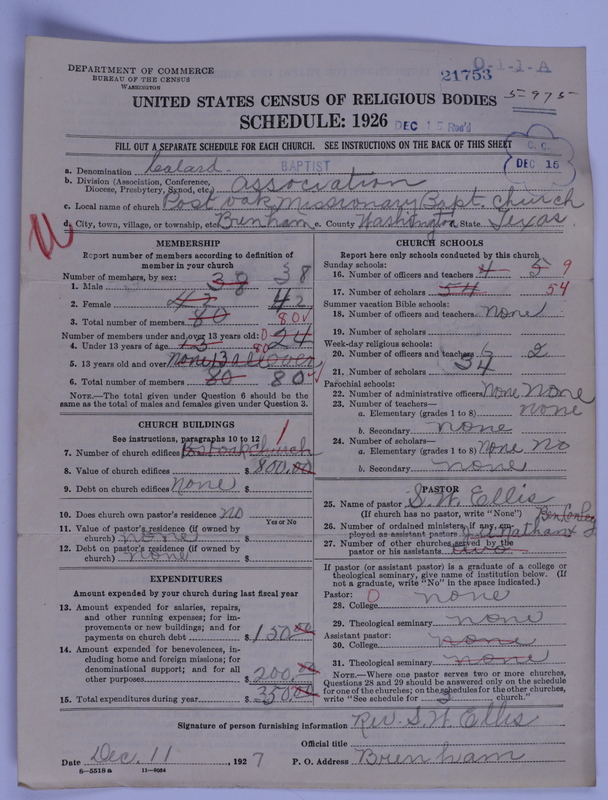 DEPARTMENT OF COMMERCE
BUREAU OF THE CENSUS
WASHINGTON
0-1-1-A
21753
5-975-
UNITED STATES CENSUS OF RELIGIOUS BODIES
SCHEDULE: 1926
DEC 15 Rec'd
FILL OUT A SEPARATE SCHEDULE FOR EACH CHURCH. SEE INSTRUCTIONS ON THE BACK OF THIS SHEET
C. C.
DEC 16
a. Denomination Colard. BAPTIST
b. Division (Association, Conference, Diocese, Presbytery, Synod, etc.) Association
c. Local name of church Post oak Missionary Bapt. Church
d. City, town, village, or township, etc. Brenham e. County Washington State Texas
MEMBERSHIP
Report number of members according to definition of member in your church
Number of members, by sex:
1. Male 38 38
2. Female 42 42
3. Total number of members 80 80
Number of members under and over 13 years old:
4. Under 13 years of age 0 24
5. 13 years old and over 80
6. Total number of members 80 80
NOTE.—The total given under Question 6 should be the same as the total of males and females given under Question 3.
CHURCH BUILDINGS
See instructions, paragraphs 10 to 12
7. Number of church edifices 1
8. Value of church edifices $ 800.00
9. Debt on church edifices None $
10. Does church own pastor's residence no
Yes or No
11. Value of pastor's residence (if owned by church) none $
12. Debt on pastor's residence (if owned by church) none $
EXPENDITURES
Amount expended by your church during last fiscal year
13. Amount expended for salaries, repairs, and other running expenses; for improvements or new buildings; and for payments on church debt $ 150.00
14. Amount expended for benevolences, including home and foreign missions; for denominational support; and for all other purposes $ 200.00
15. Total expenditures during year $ 350.00
CHURCH SCHOOLS
Report here only schools conducted by this church
Sunday schools:
16. Number of officers and teachers 4 5 9
17. Number of scholars 54 54
Summer vacation Bible schools:
18. Number of officers and teachers none
19. Number of scholars
Week-day religious schools:
20. Number of officers and teachers 2
21. Number of scholars 34
Parochial schools:
22. Number of administrative officers None None
23. Number of teachers—
a. Elementary (grades 1 to 8) none
b. Secondary none
24. Number of scholars—
a. Elementary (grades 1 to 8) None No
b. Secondary none
PASTOR
25. Name of pastor S. W. Ellis
(If church has no pastor, write "None")
26. Number of ordained ministers, if any, employed as assistant pastors
27. Number of other churches served by the pastor or his assistants two
If pastor (or assistant pastor) is a graduate of a college or theological seminary, give name of institution below. (If not a graduate, write "No" in the space indicated.)
Pastor:
28. College 0 none
29. Theological seminary none
Assistant pastor:
30. College none
31. Theological seminary none
NOTE.—Where one pastor serves two or more churches, Questions 28 and 29 should be answered only on the schedule for one of the churches; on the schedules for the other churches, write "See schedule for 3 church."
Signature of person furnishing information Rev. S. W. Ellis
Official title
Date Dec. 11, 1927 P. O. Address Brenham
6—5518 a 11—9084